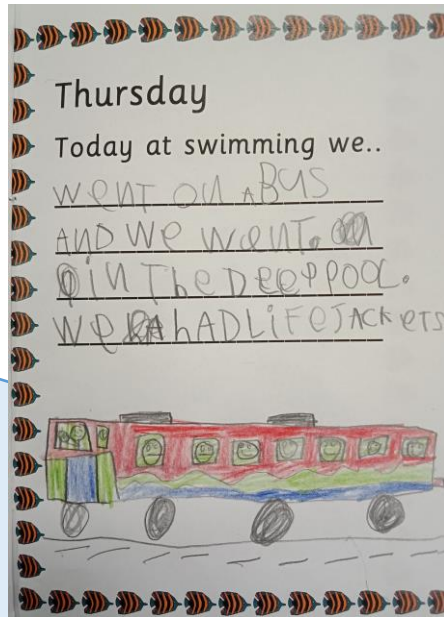 Thursday
Today at swimming we..
went on A BUS
AND we went.
in The DEEP POOL.
we hAD LiFeJACKeTS